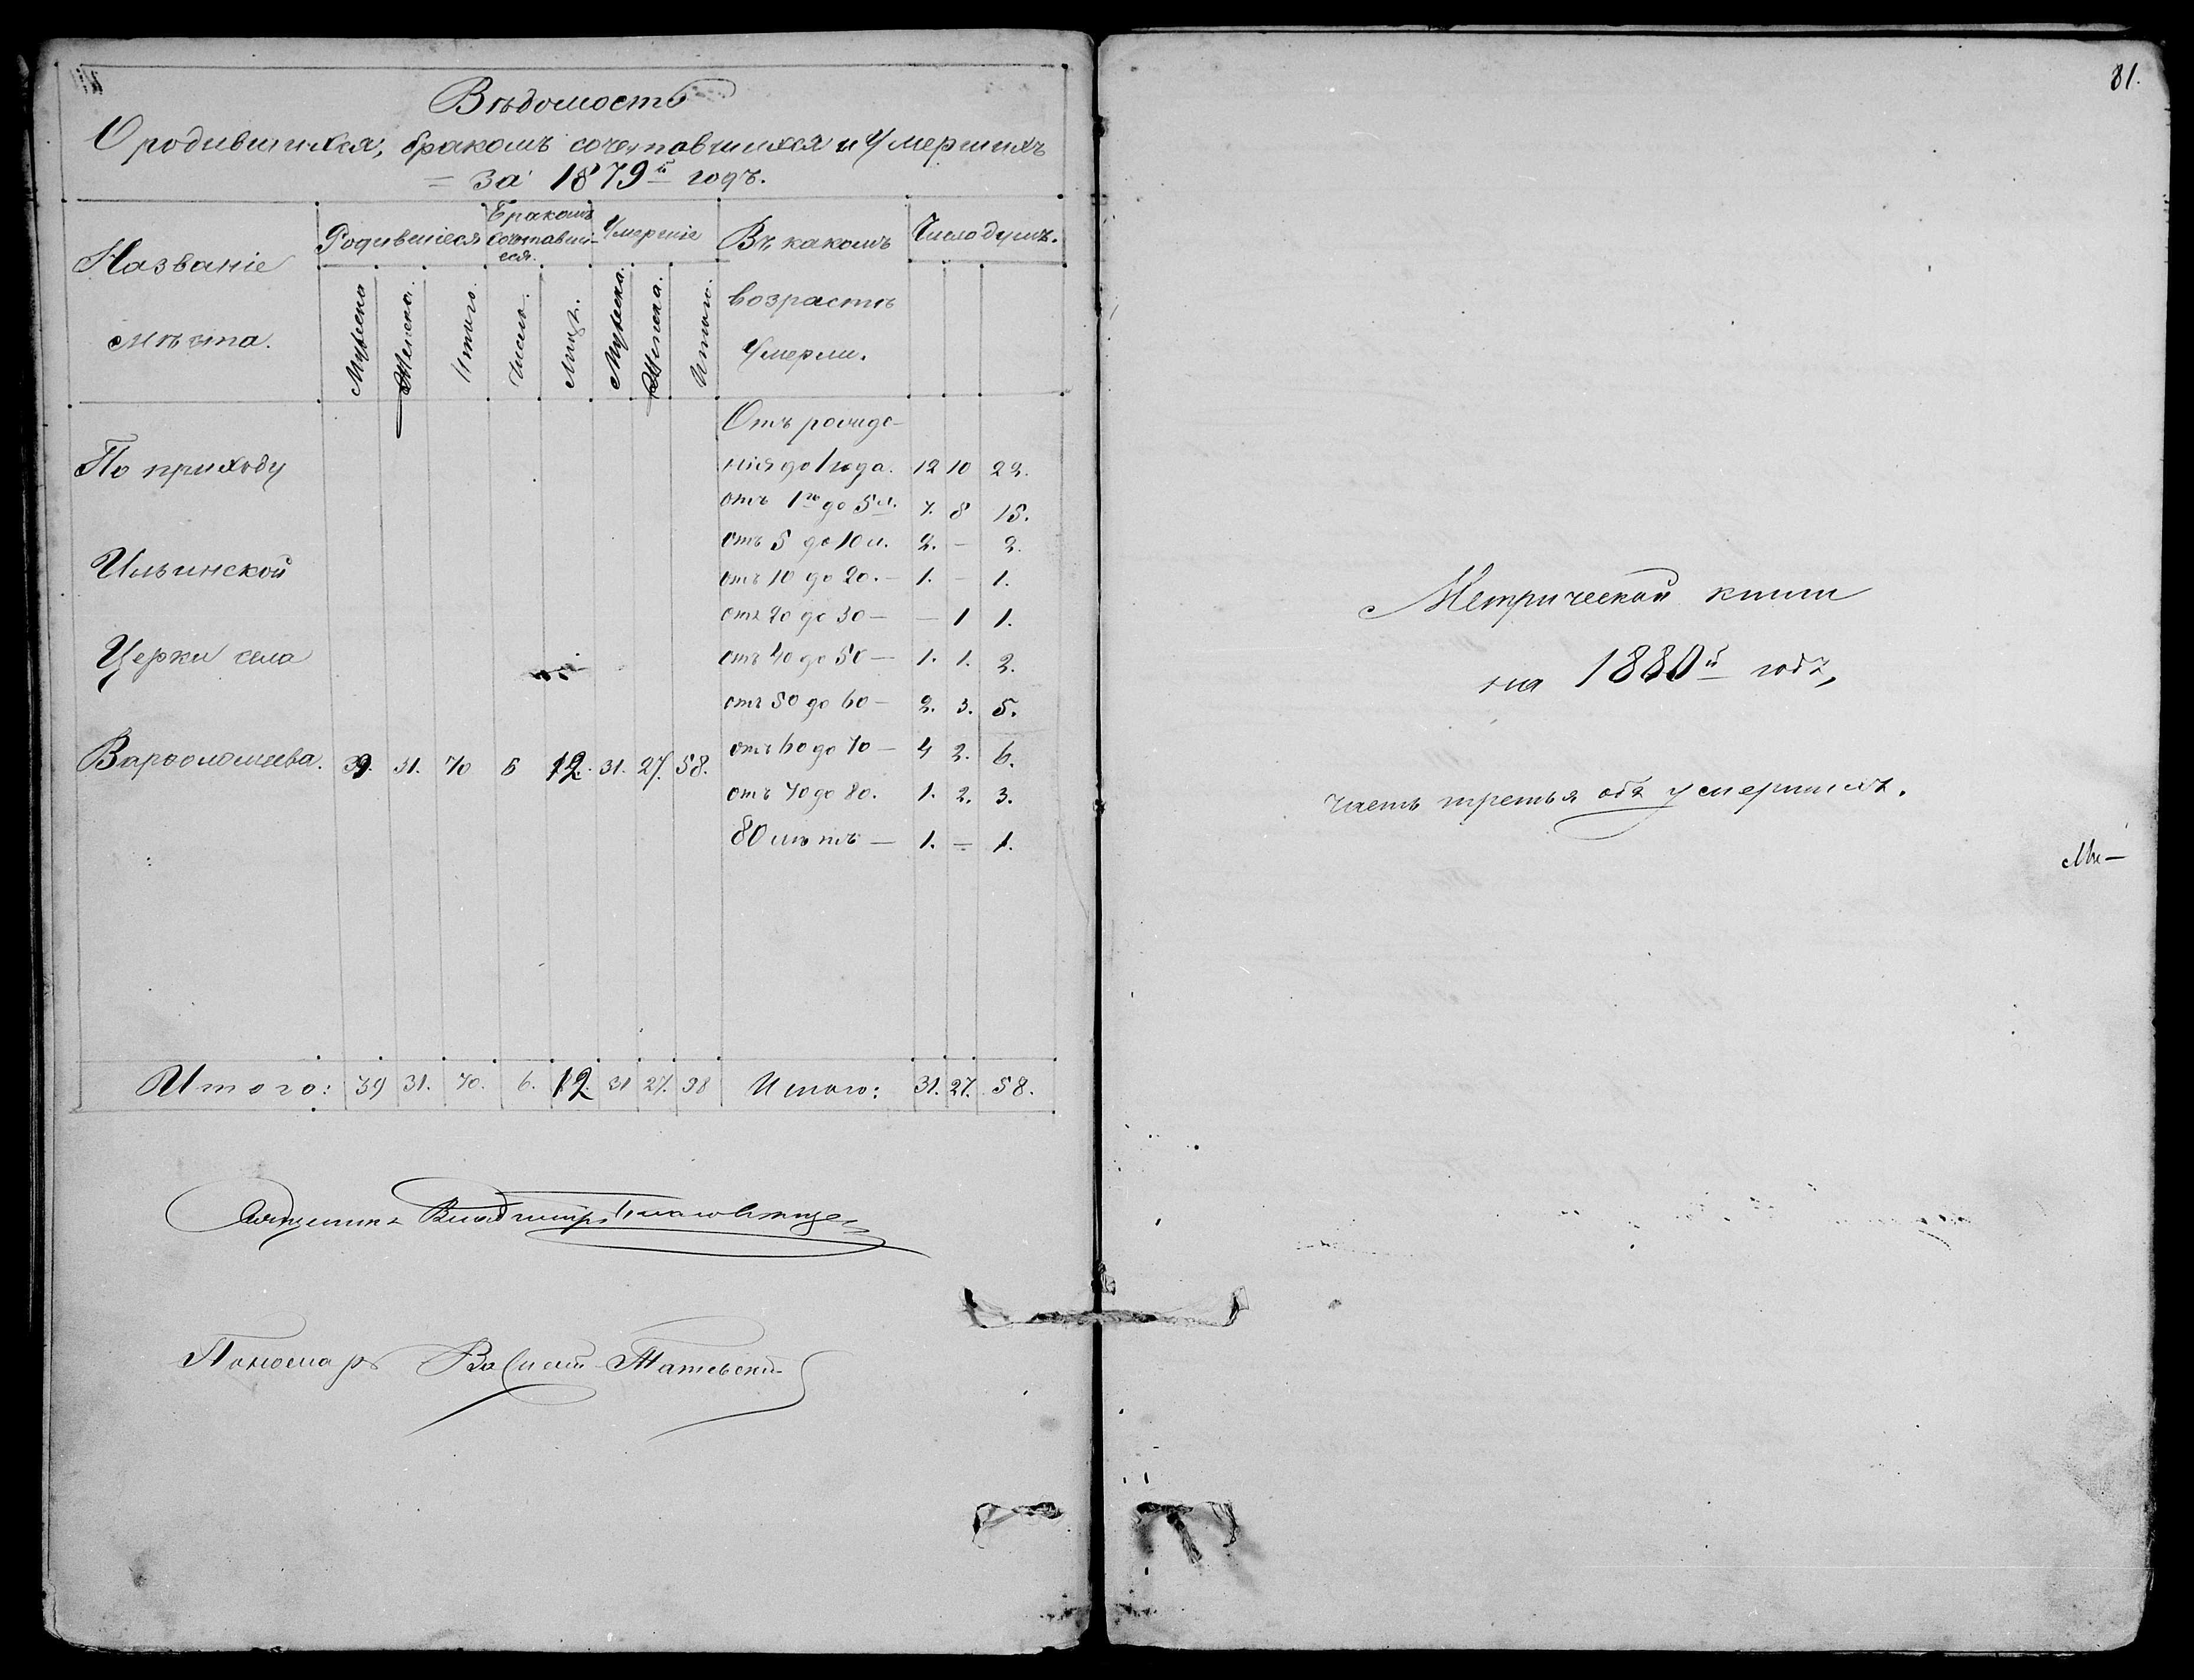 Вѣдомость
О родившихся, бракомъ сочетавшихся и Умершихъ
= за 1879й годъ.
Названіе
мѣста.
Родившіеся
Бракомъ
сочетавші-
еся.
Умершіе
Въ какомъ
возрастѣ
Умерли.
Число душъ.
Мужеска
Женска.
Итого.
Число.
Лицъ.
Мужеска.
Женска.
Итого.
По приходу
Ильинской
Церкви села
Варѳоломеева. 39. 31. 70 6 12. 31. 27. 58.
Отъ рожде-
нія до 1 года. 12 10 22.
отъ 1го до 5 л. 7. 8 15.
отъ 5 до 10 л. 2. — 2.
отъ 10 до 20. — 1. — 1.
отъ 20 до 30 — — 1 1.
отъ 40 до 50 — 1. 1. 2.
отъ 50 до 60 — 2. 3. 5.
отъ 60 до 70 — 4 2. 6.
отъ 70 до 80. 1. 2. 3.
80 лѣтъ — 1. — 1.
Итого: 39 31. 70. 6. 12. 31 27. 58 Итого: 31. 27. 58.
Священникъ Владимиръ
Пономарь Василій Татевскій
81.
Метрической книги
на 1880й годъ,
часть третья объ умершихъ.